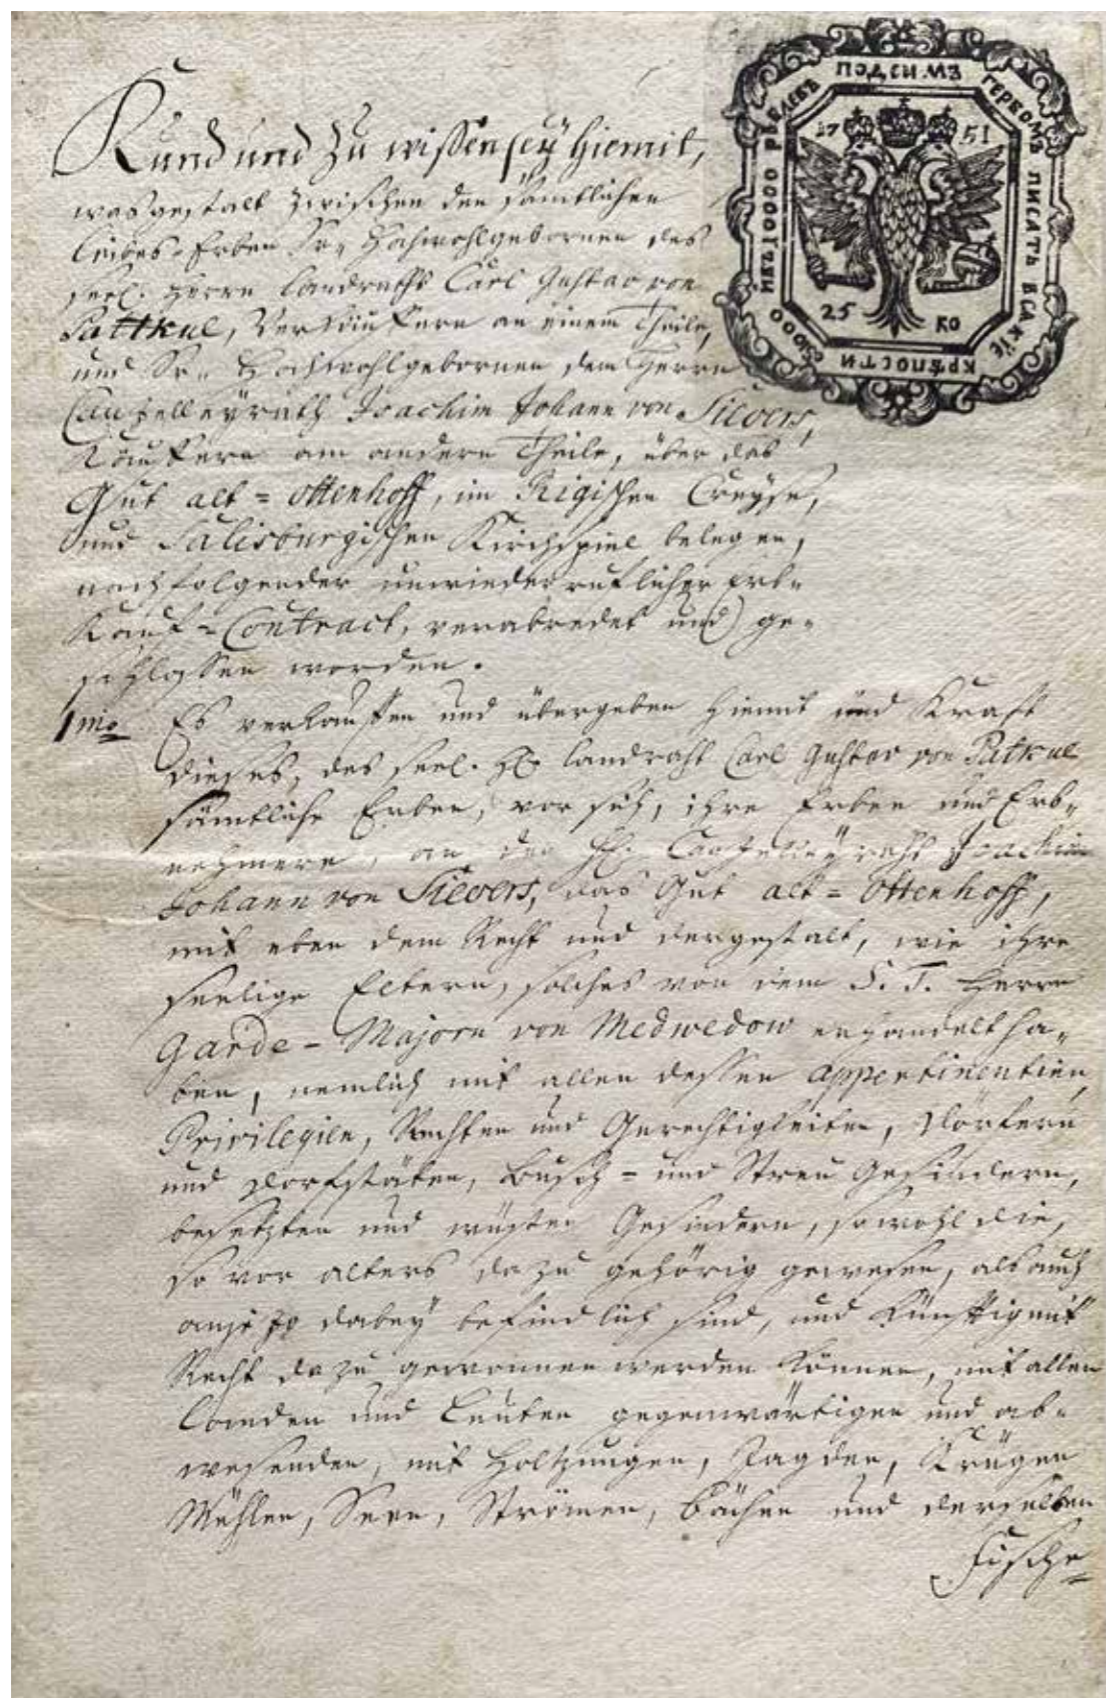 Kund und zu wissen sey hiemit,
was gestalt zwischen den sämtlichen
Leibes-Erben Sr. Hochwohlgebornen des
seel. Herrn Landraths Carl Gustav von
Pattkul, Verkäuffern an einem Theile,
und Sr. Hochwohlgebornen dem Herrn
Cantzelleyrath Joachim Johann von Sievers,
Käuffern am andern Theile, über das
Guht alt=ottenhoff, im Rigischen Creyse,
und Salisburgischen Kirchspiel belegen,
nachfolgender unwiederruflicher Erb=
Kauf=Contract, verabredet und ge=
schlossen worden.
1mo Es verkauffen und übergeben hiemit und Krafft
dieses, des seel. H. Landraht Carl Gustav von Patkul
sämtliche Erben, vor sich, ihre Erben und Erb=
nehmere, an den H. Cantzelleyraht Joachim
Johann von Sievers, das Guht alt=ottenhoff,
mit eben dem Recht und dergestalt, wie ihre
seelige Eltern, solches von dem S. T. Herrn
Garde-Majorn von Medwedow erhandelt ha=
ben, nemlich mit allen dessen appertinentien,
Privilegien, Rechten und Gerechtigkeiten, Dörfern
und Dorfstäten, Busch= und Streu Gesindern,
besetzten und wüsten Gesindern, sowohl die,
so vor alters dazu gehörig gewesen, als auch
anjetzo dabey befindlich sind, und künfftig mit
Recht dazu gewonnen werden können, mit allen
Landen und Leuten gegenwärtigen und ab=
wesenden, mit Holtzungen, Jagden, Krügen
Mühlen, Seen, Strömen, Bächen und derselben
Fische=
ПОД СИМЪ ГЕРБОМЪ ПИСАТЬ ВСАКІЕ КРѢПОСТИ
РУБЛЕВЪ
1751
25 КО